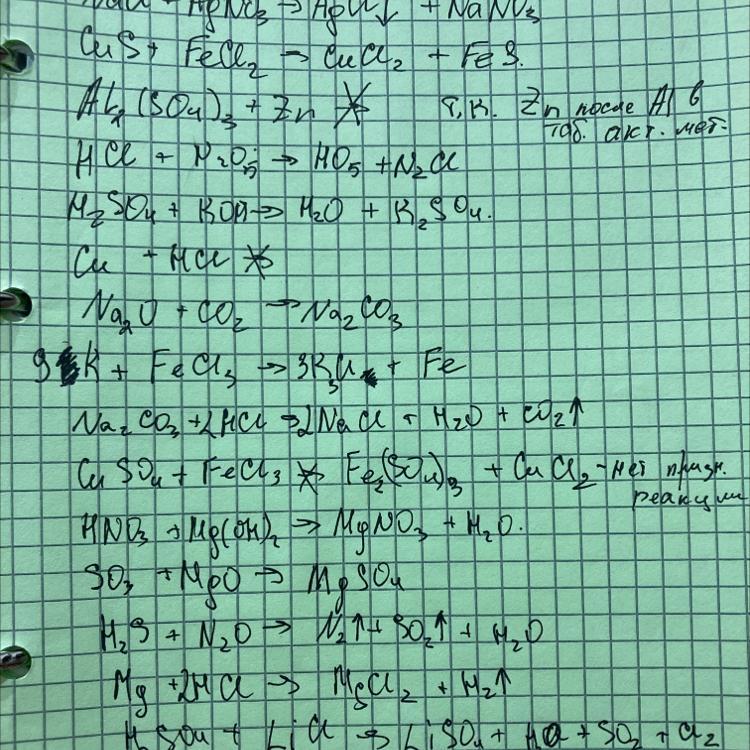 NaCl + AgNO₃ → AgCl↓ + NaNO₃
CuS + FeCl₂ → CuCl₂ + FeS.
Al₂(SO₄)₃ + Zn ↛ т.к. Zn после Al в
таб. акт. мет.
HCl + N₂O₅ → HO₅ + N₂Cl
H₂SO₄ + KOH → H₂O + K₂SO₄.
Cu + HCl ↛
Na₂O + CO₂ → Na₂CO₃
3 K + FeCl₃ → 3K₃Cl + Fe
Na₂CO₃ + 2HCl → 2NaCl + H₂O + CO₂↑
CuSO₄ + FeCl₃ ↛ Fe₂(SO₄)₃ + CuCl₂ - нет призн.
реакции
HNO₃ + Mg(OH)₂ → MgNO₃ + H₂O.
SO₃ + MgO → MgSO₄
H₂S + N₂O → N₂↑ + SO₂↑ + H₂O
Mg + 2HCl → MgCl₂ + H₂↑
H₂SO₄ + LiCl → LiSO₄ + + SO₂ + Cl₂